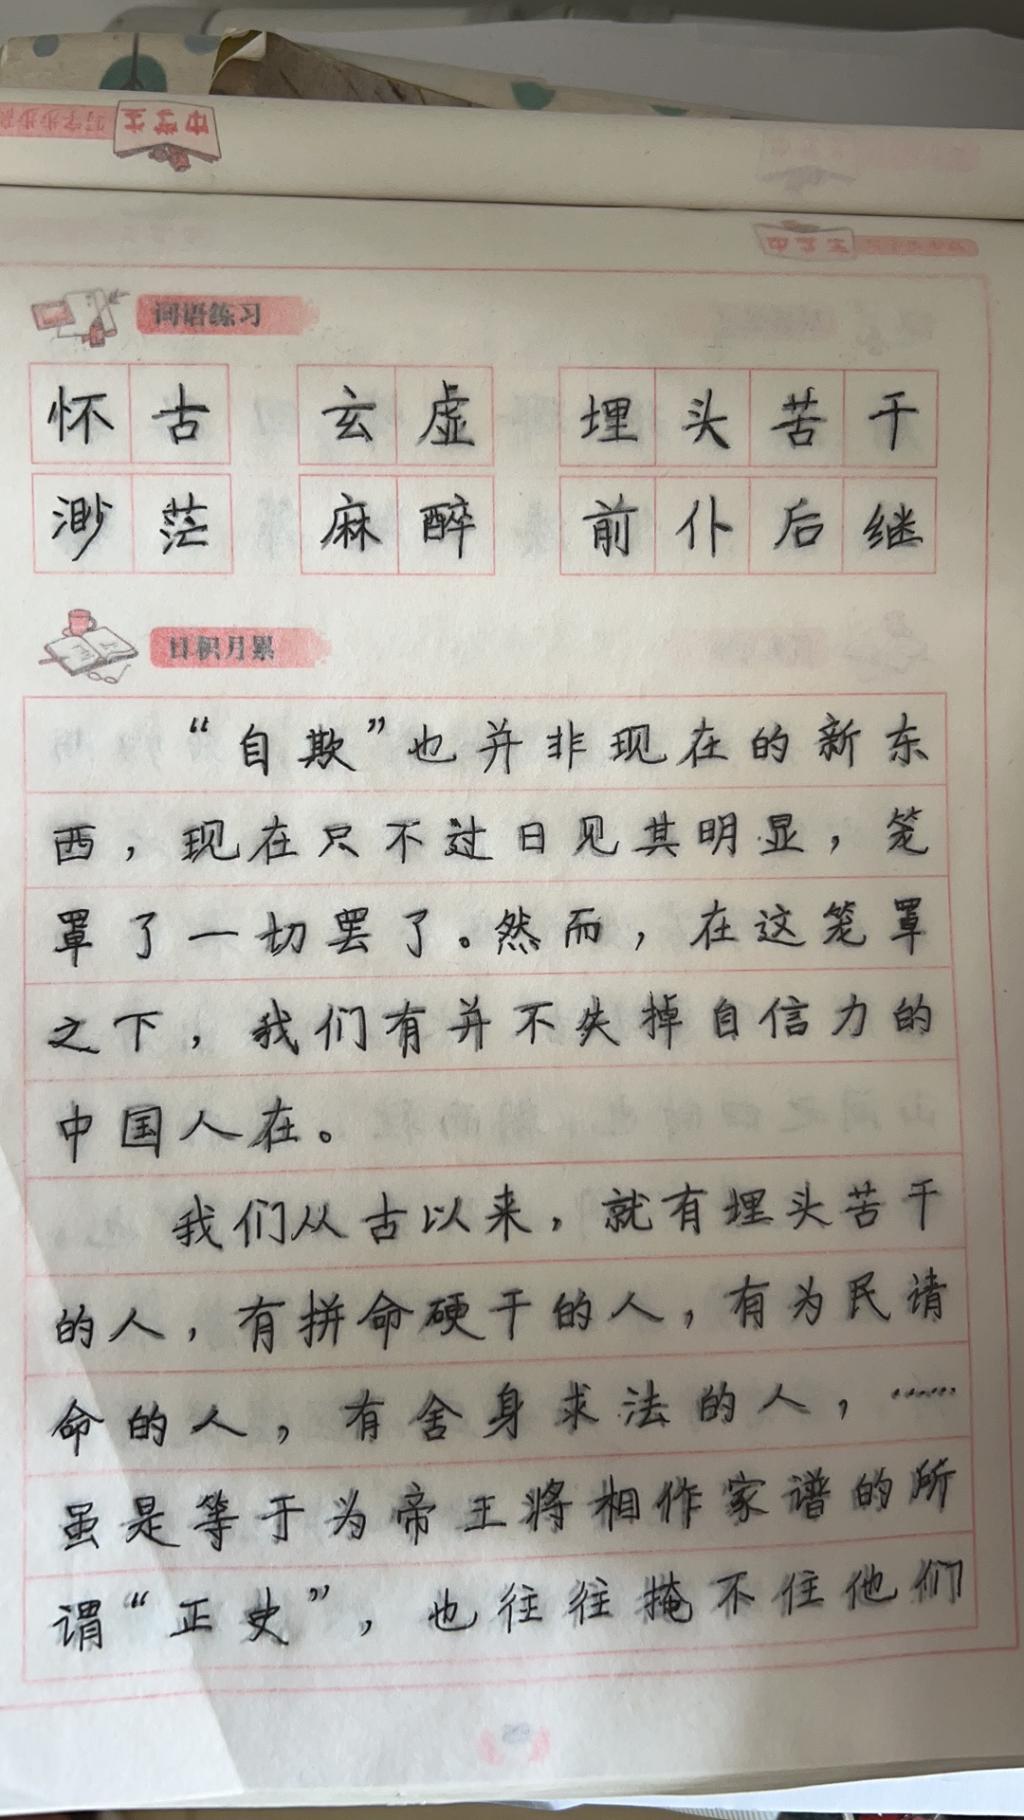 中学生
中学生
词语练习
怀古 玄虚 埋头苦干
渺茫 麻醉 前仆后继
日积月累
“自欺”也并非现在的新东
西，现在只不过日见其明显，笼
罩了一切罢了。然而，在这笼罩
之下，我们有并不失掉自信力的
中国人在。
我们从古以来，就有埋头苦干
的人，有拼命硬干的人，有为民请
命的人，有舍身求法的人，……
虽是等于为帝王将相作家谱的所
谓“正史”，也往往掩不住他们